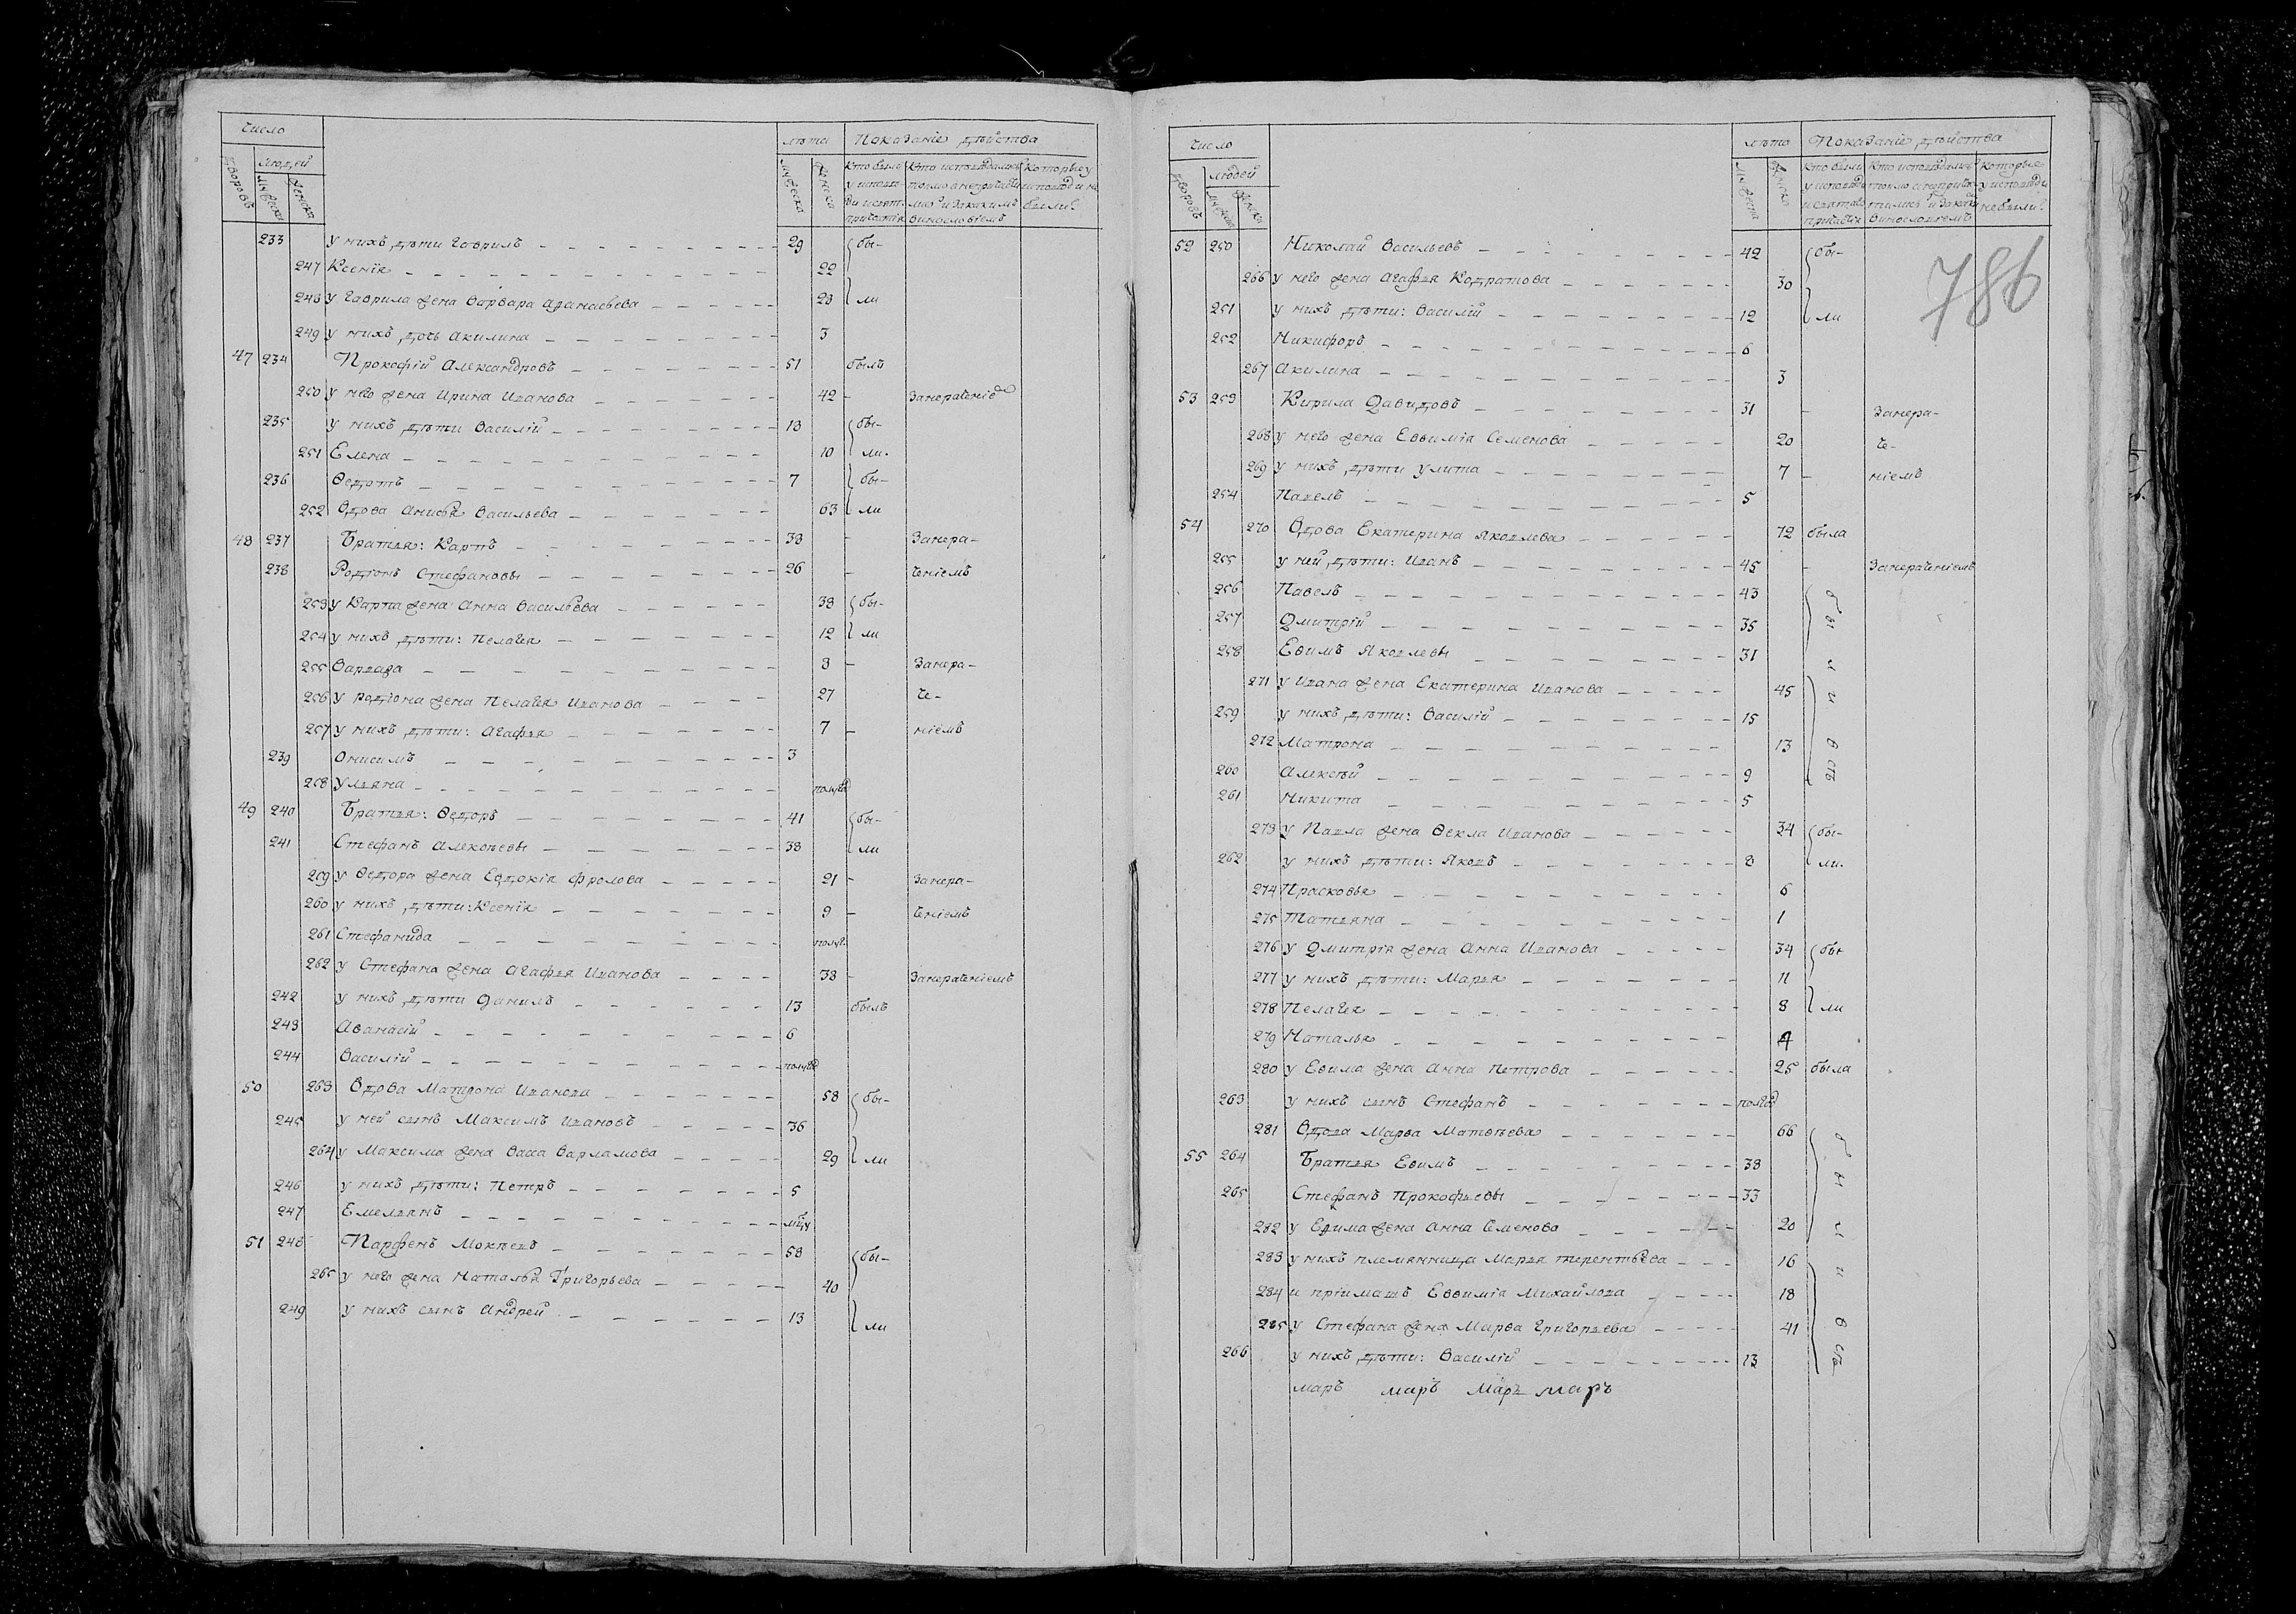 Число лѣта Показанiе дѣйства
дворовъ людей мужеска женска мужеска женска
Кто были у исповѣди и свят: причастія
Кто исповѣдались токмо а непричастились и закакимъ винословіемъ
Которые у исповѣди не были
233 у нихъ дѣти Гаврилъ 29 бы-
247 Ксенiя 22
248 у Гаврила жена Варвара Афанасьева 28 ли
249 у нихъ дочь Акилина 3
47 234 Прокофiй Александровъ 51 былъ
250 у него жена Ирина Иванова 42 - Занераченiе
235 у нихъ дѣти Василiй 13 бы-
251 Елена 10 ли.
236 Ѳедотъ 7 бы-
252 Вдова Анисья Васильева 63 ли
48 237 Братья: Карпъ 38 - Занера-
238 Родiонъ Стефановы 26 - ченiемъ
253 у Карпа жена Анна Васильева 38 бы-
254 у нихъ дѣти: Пелагея 12 ли
255 Варвара 8 - Занера-
256 у Родiона жена Пелагея Иванова 27 че-
257 у нихъ дѣти: Агафья 7 - нiемъ
239 Онисимъ 3
258 Ульяна полуго
49 240 Братья: Ѳедоръ 41 бы-
241 Стефанъ Алексѣевы 38 ли
259 у Ѳедора жена Евдокiя Фролова 21 - Занера-
260 у нихъ дѣти: Ксенiя 9 - ченiемъ
261 Стефанида полуг.
262 у Стефана жена Агафья Иванова 38 - Занераченiемъ
242 у нихъ дѣти Данилъ 13 былъ
243 Аѳанасiй 6
244 Василiй полуго
50 263 Вдова Матрона Иванова 58 бы-
245 у ней сынъ Максимъ Ивановъ 36
264 у Максима жена Васа Варламова 29 ли
246 у нихъ дѣти: Петръ 5
247 Емельянъ
51 248 Парфенъ Мокѣевъ 58 бы-
265 у него жена Наталья Григорьева 40
249 у нихъ сынъ Андрей 13 ли
Число лѣто Показанiе дѣйства
дворовъ людей мужеска женска мужеска женска
Кто были у исповѣди и святаго причастія
Кто исповѣдались токмо а не причастились и закакимъ винословіемъ
Которые у исповѣди не были
786
52 250 Николай Васильевъ 42 бы-
266 у него жена Агафья Кодратова 30
251 у нихъ дѣти: Василiй 12 ли
252 Никифоръ 6
267 Акилина 3
53 253 Кирила Давидовъ 31 - Занера-
268 у него жена Евѳимiя Семенова 20 че-
269 у нихъ дѣти Улита 7 - нiемъ
254 Павелъ 5
54 270 Вдова Екатерина Яковлева 72 была
255 у ней дѣти: Иванъ 45 - Занераченiемъ
256 Павелъ 43 бы
257 Дмитрiй 35
258 Евимъ Яковлевы 31 ли
271 у Ивана жена Екатерина Иванова 45
259 у нихъ дѣти: Василiй 15
272 Матрона 13 всѣ
260 Алексѣй 9
261 Никита 5
273 у Павла жена Ѳекла Иванова 34 бы-
262 у нихъ дѣти: Яковъ 8 ли.
274 Прасковья 6
275 Татьяна 1
276 у Дмитрiя жена Анна Иванова 34 бы
277 у нихъ дѣти: Марья 11
278 Пелагея 8 ли
279 Наталья 4
280 у Евима жена Анна Петрова 25 была
263 у нихъ сынъ Стефанъ полгод
281 Вдова Марѳа Матвѣева 66 бы
55 264 Братья Евимъ 38
265 Стефанъ Прокофьевы 33
282 у Евима жена Анна Семенова 20 ли
283 у нихъ племянница Марья Терентьева 16
284 и прiимашъ Евѳимiя Михайлова 18
285 у Стефана жена Марѳа Григорьева 41 всѣ
266 у нихъ дѣти: Василiй 13
маръ маръ маръ маръ